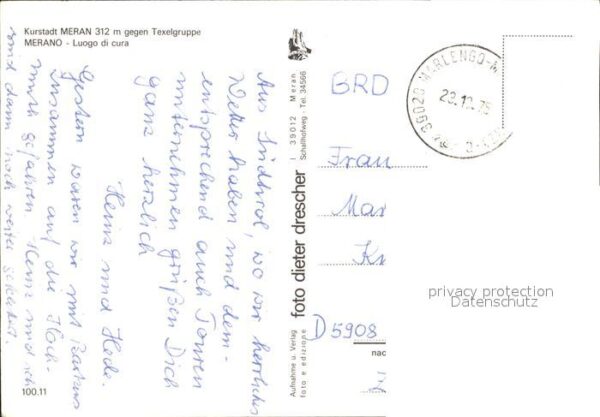 Kurstadt MERAN 312 m gegen Texelgruppe
MERANO - Luogo di cura
Aus Südtirol, wo wir herrliches
Wetter haben und dem-
entsprechend auch Touren
unternehmen grüßen Dich
ganz herzlich
Heinz und Hede.
Gestern waren wir mit
zusammen auf die Hoch-
gefahren Heinz und ich
sind dann noch weiter
100.11
Aufnahme u. Verlag
foto e edizione
foto dieter drescher
I 39012 Meran
Schallhofweg - Tel. 34566
39020 MARLENGO-M
23.10.75
BRD
Frau
Mar
K
D 5908
nac
privacy protection
Datenschutz